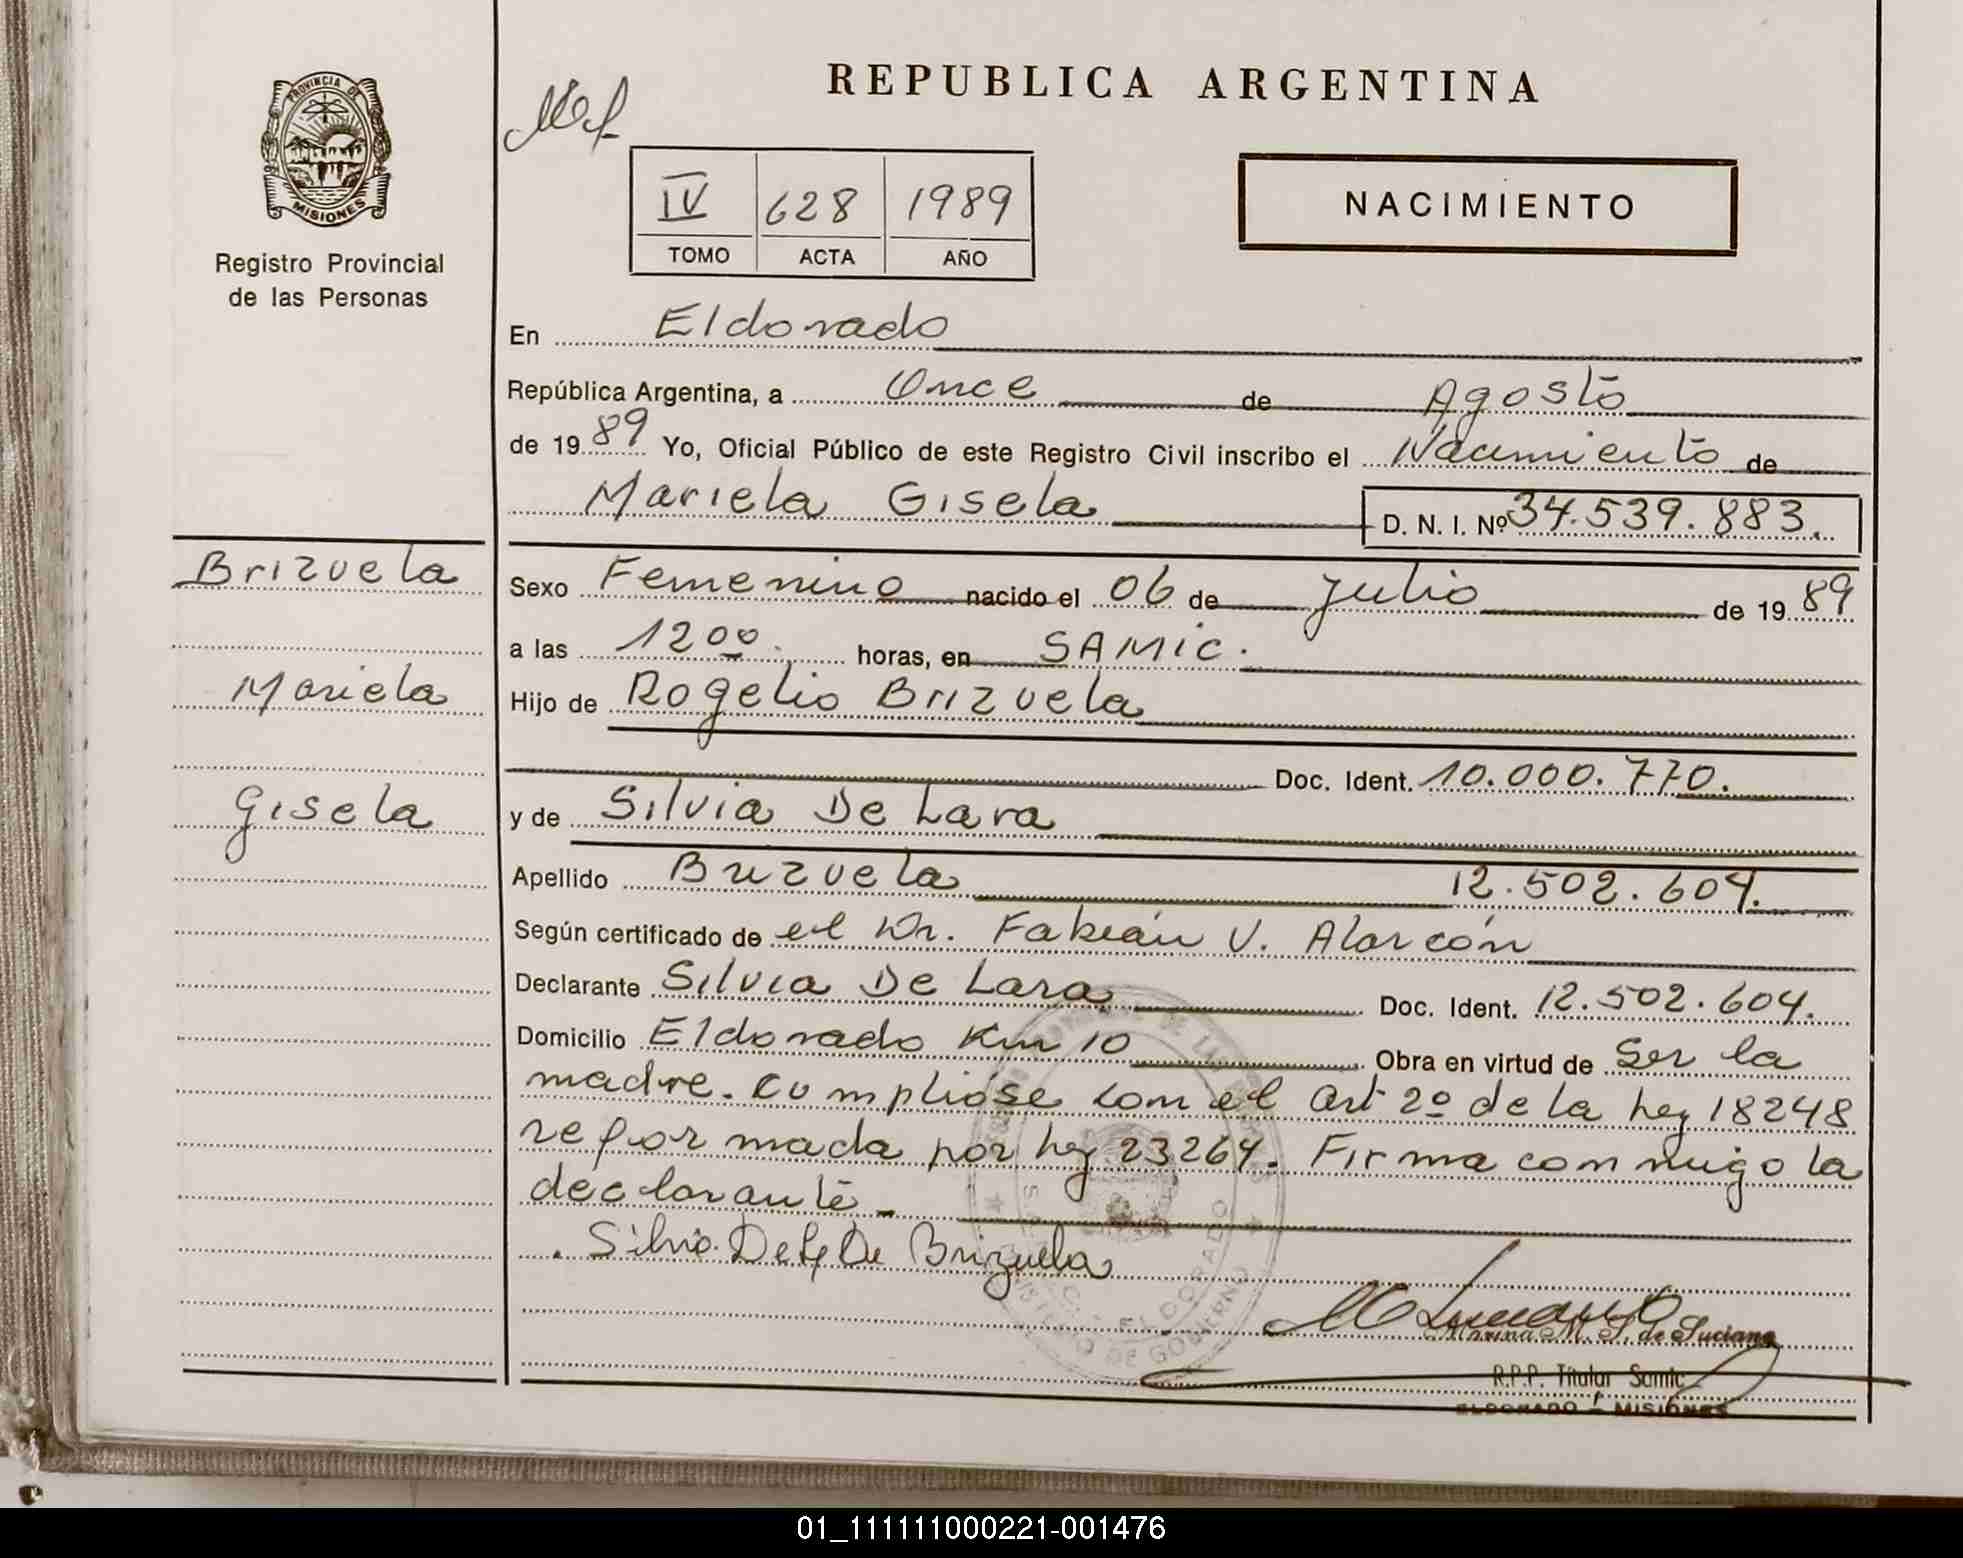 PROVINCIA DE
MISIONES
Registro Provincial
de las Personas
REPUBLICA ARGENTINA
IV 628 1989
TOMO ACTA AÑO
NACIMIENTO
En Eldorado
República Argentina, a Once de Agosto
de 1989 Yo, Oficial Público de este Registro Civil inscribo el Nacimiento de
Mariela Gisela D. N. I. Nº 34.539.883.
Brizuela
Mariela
Gisela
Sexo Femenino nacido el 06 de Julio de 1989
a las 12 00. horas, en SAMIC.
Hijo de Rogelio Brizuela
Doc. Ident. 10.000.770.
y de Silvia De Lara
Apellido Brizuela 12.502.604.
Según certificado de el Dr. Fabián V. Alarcón
Declarante Silvia De Lara Doc. Ident. 12.502.604.
Domicilio Eldorado Km 10 Obra en virtud de Ser la
madre. Cumplióse con el Art 2º de la Ley 18248
reformada por Ley 23264. Firma conmigo la
declarante
Silvia De L De Brizuela
ELDORADO
MINISTERIO DE GOBIERNO
Marina M. S. de Luciano
R.P.P. Titular Samic
ELDORADO - MISIONES
01_111111000221-001476